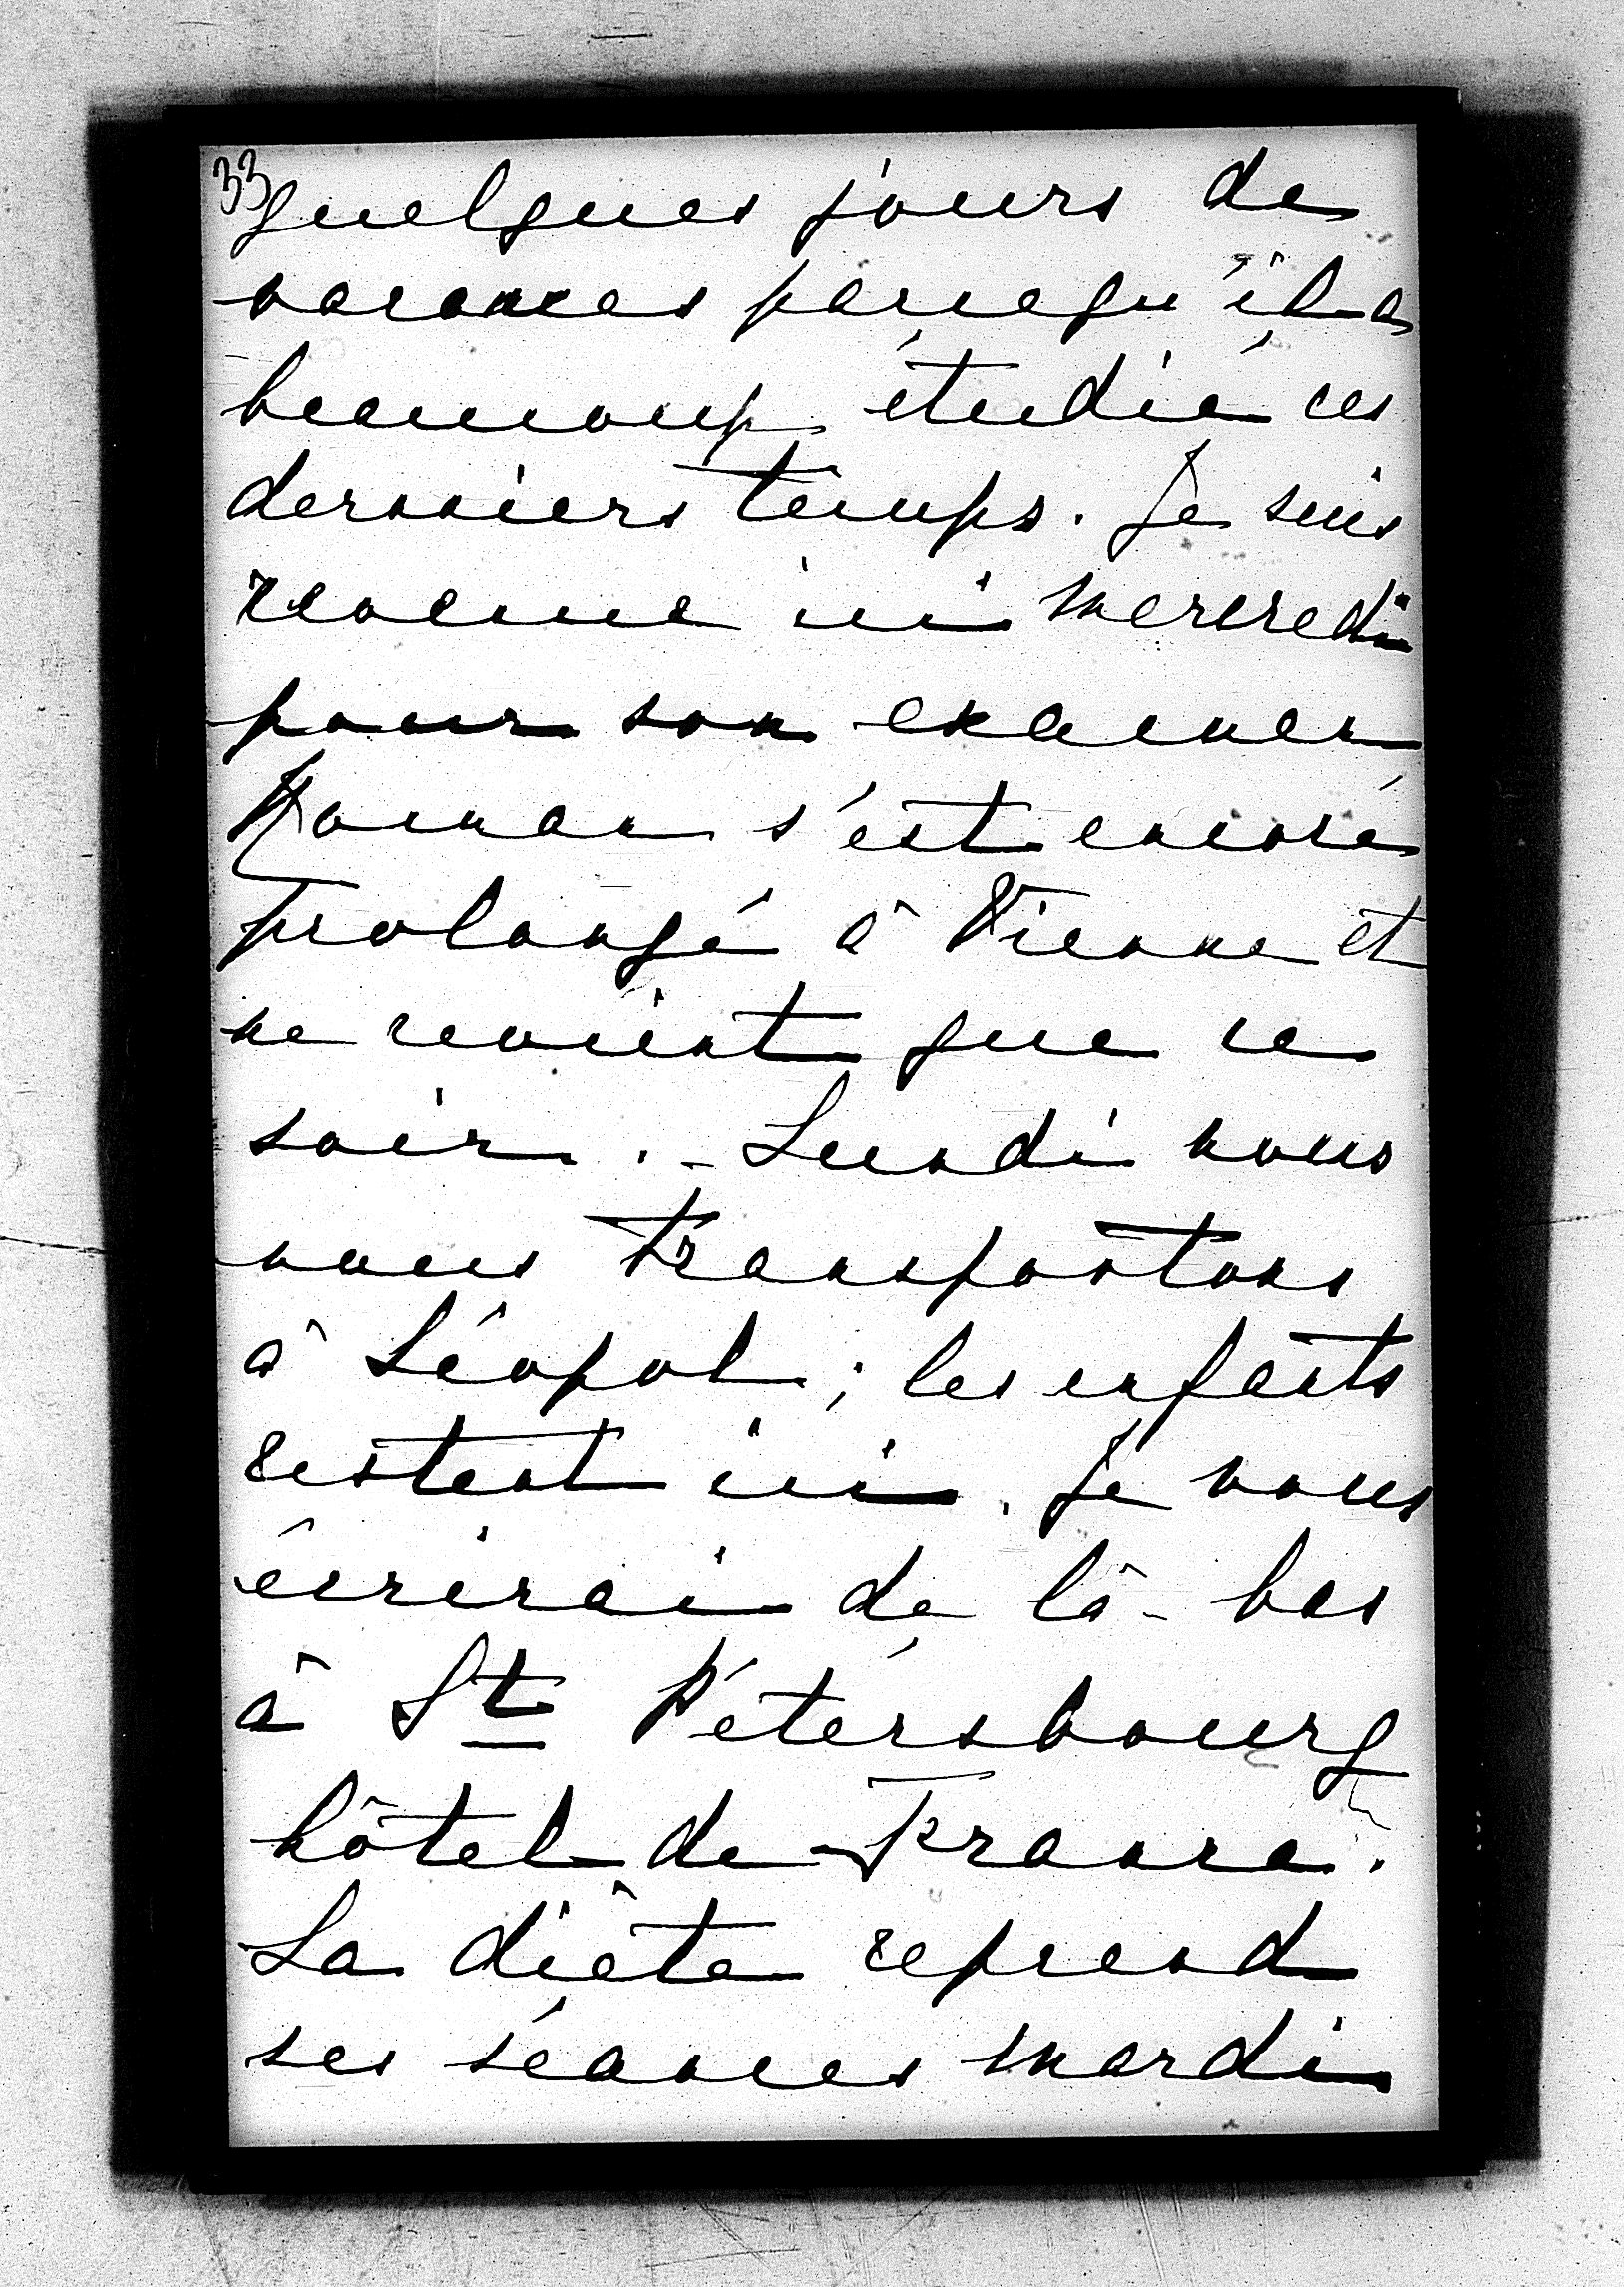 33
quelques jours de
vacances parcequ'il a
beaucoup étudié ces
derniers temps. Je suis
revenue ici mercredi
pour son examen
Roman s'est encore
prolongé à Vienne et
ne revient que ce
soir. - Lundi nous
nous transportons
à Léopol ; les enfants
restent ici. Je vous
écrirai de là-bas
à St Pétersbourg
hôtel de France.
La diète reprend
ses séances mardi